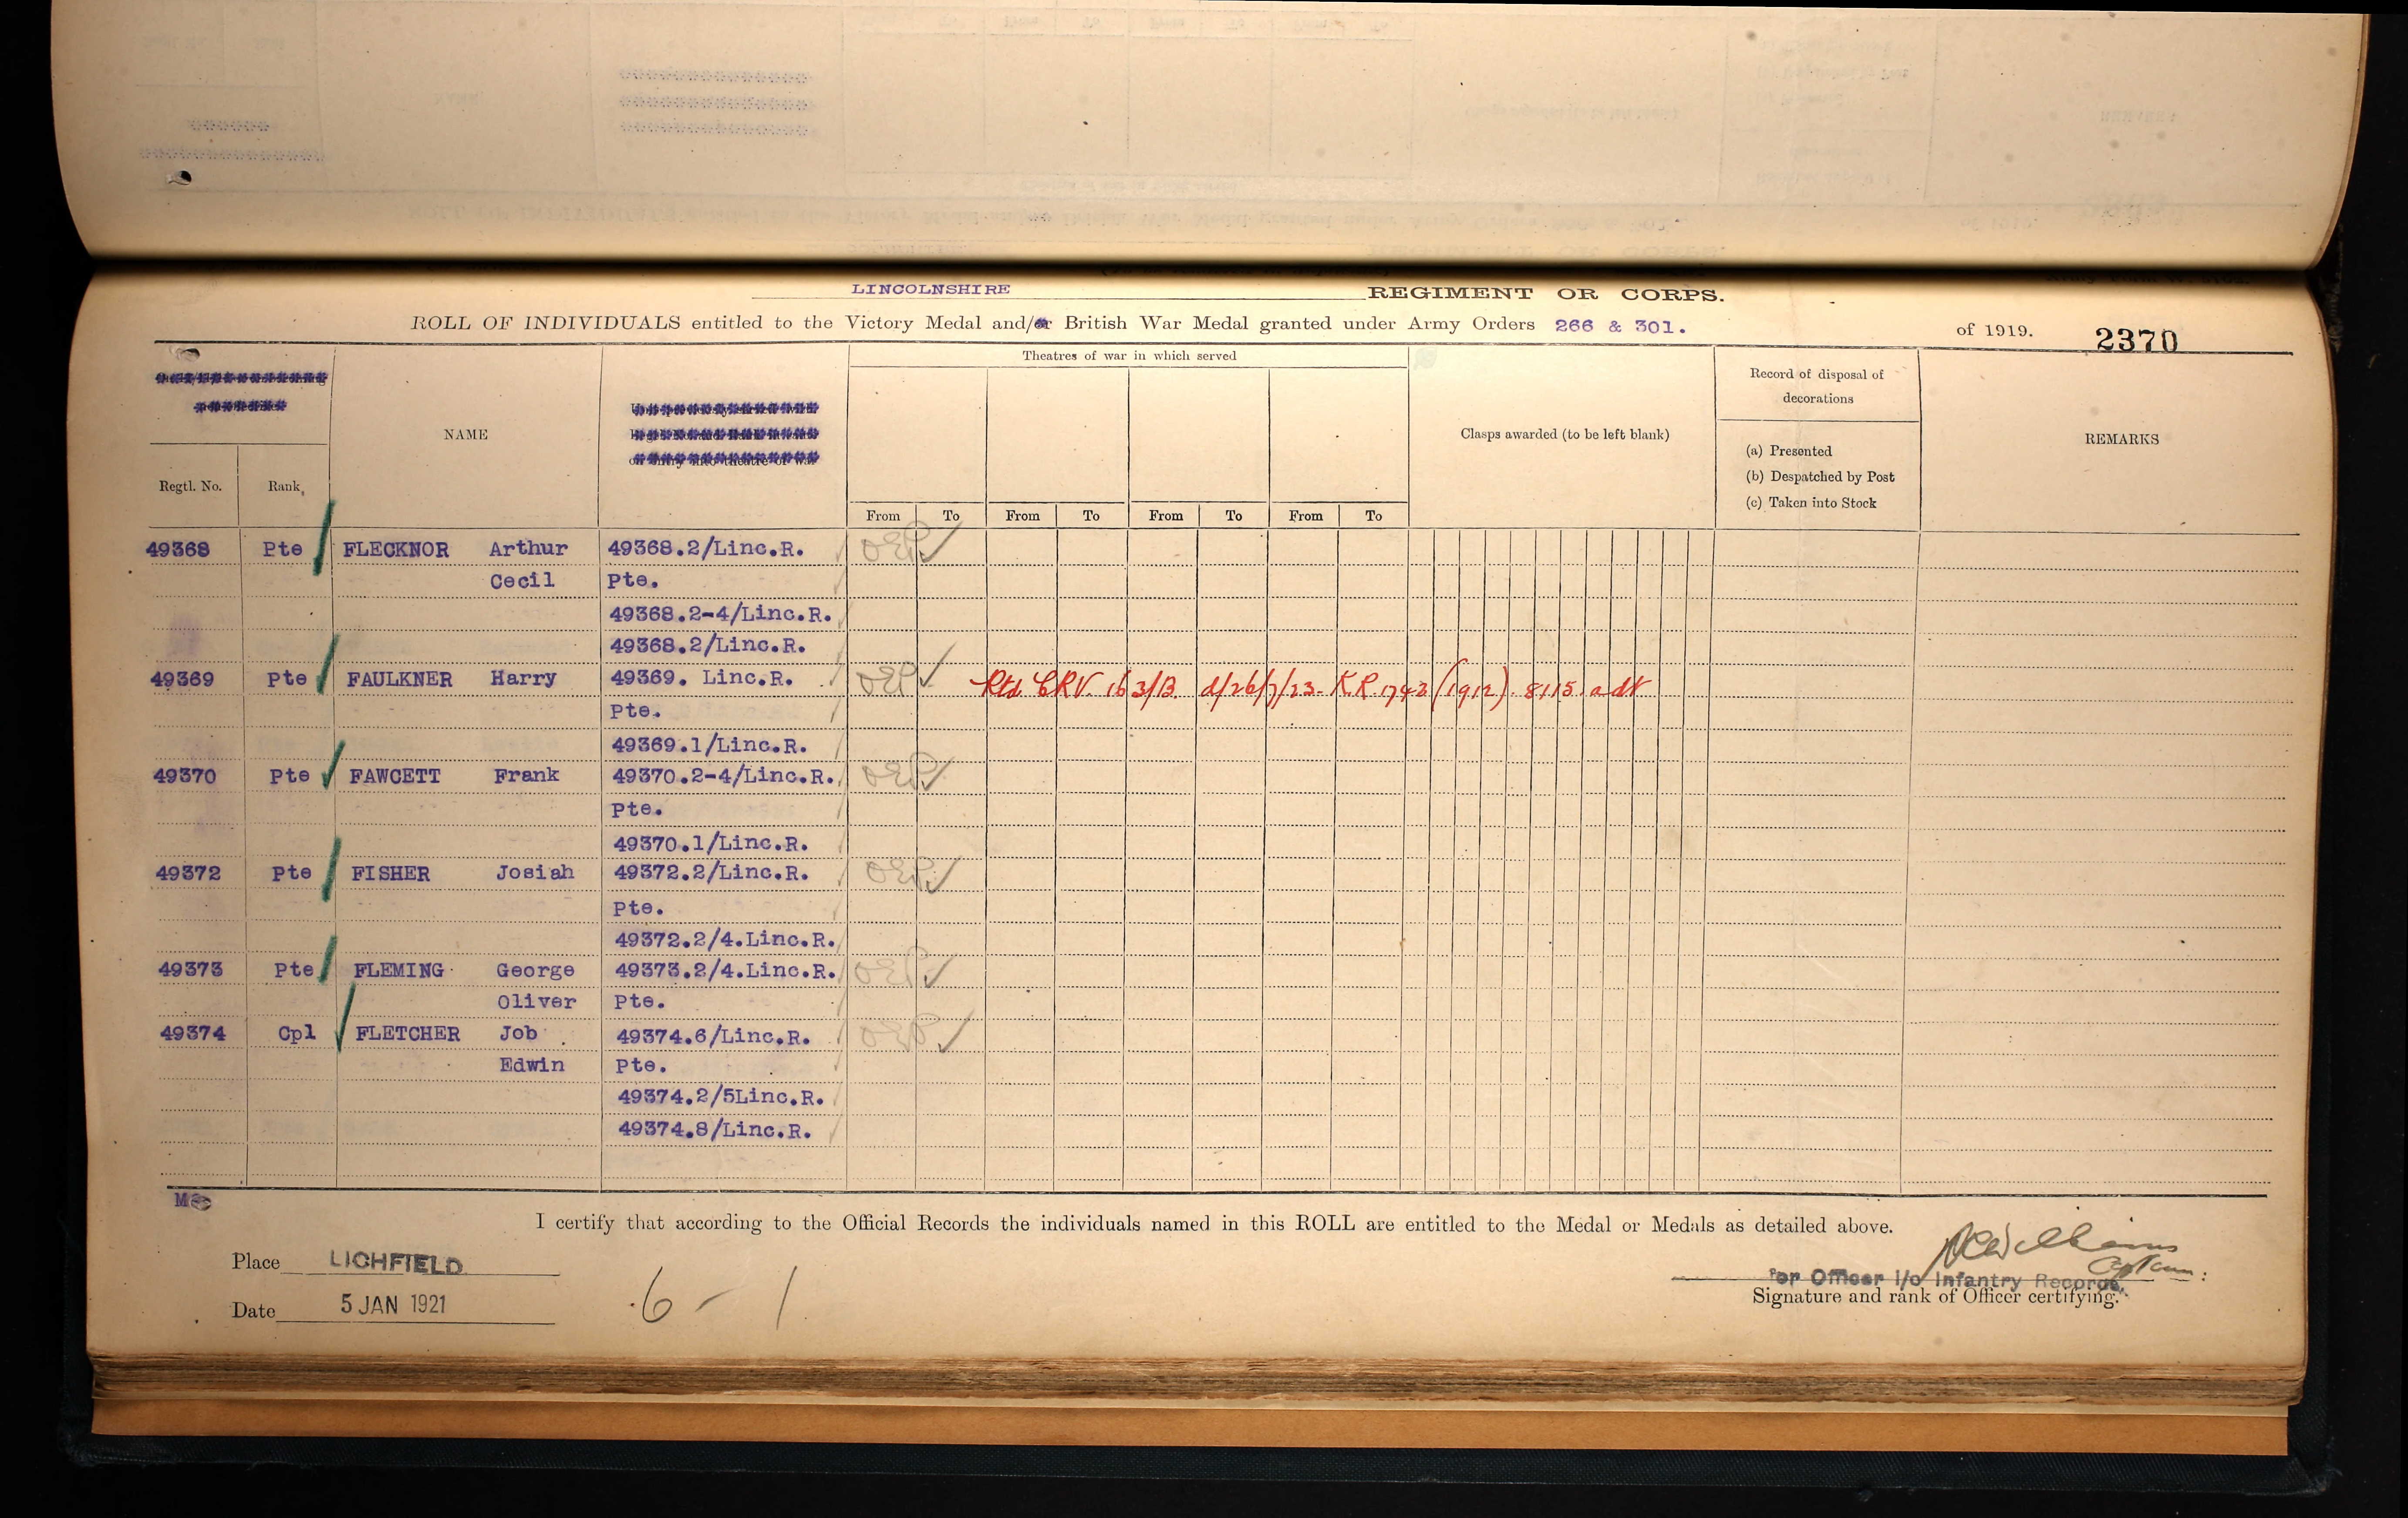 LINCOLNSHIRE REGIMENT OR CORPS.
ROLL OF INDIVIDUALS entitled to the Victory Medal and/or British War Medal granted under Army Orders 266 & 301. of 1919. 2370
Theatres of war in which served
Record of disposal of
decorations
NAME
Clasps awarded (to be left blank)
REMARKS
(a) Presented
(b) Despatched by Post
(c) Taken into Stock
Regtl. No. Rank
From To From To From To From To
49368 Pte FLECKNOR Arthur 49368.2/Linc.R.
Cecil Pte.
49368.2-4/Linc.R.
49368.2/Linc.R.
49369 Pte FAULKNER Harry 49369. Linc.R. Rtd CRV 163/B d/26/7/23. KR.1743 (1912). 8115 adt
Pte.
49369.1/Linc.R.
49370 Pte FAWCETT Frank 49370.2-4/Linc.R.
Pte.
49370.1/Linc.R.
49372 Pte FISHER Josiah 49372.2/Linc.R.
Pte.
49372.2/4.Linc.R.
49373 Pte FLEMING George 49373.2/4.Linc.R.
Oliver Pte.
49374 Cpl FLETCHER Job 49374.6/Linc.R.
Edwin Pte.
49374.2/5Linc.R.
49374.8/Linc.R.
I certify that according to the Official Records the individuals named in this ROLL are entitled to the Medal or Medals as detailed above.
Place LICHFIELD
for Officer i/c Infantry Records.
Signature and rank of Officer certifying.
Date 5 JAN 1921
6 - 1